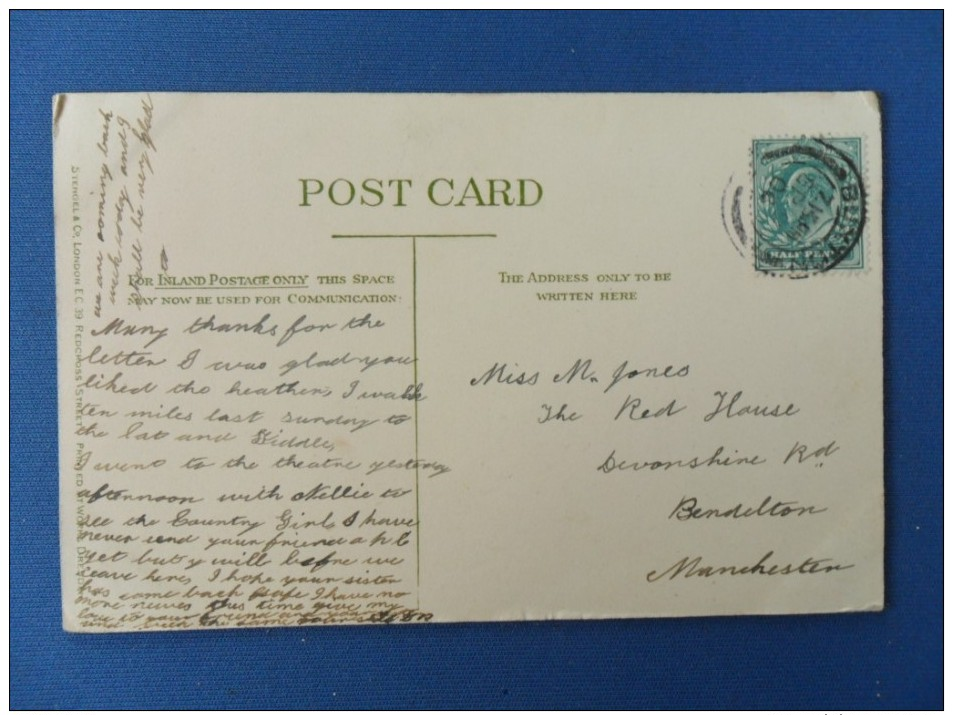 POST CARD
FOR INLAND POSTAGE ONLY THIS SPACE
MAY NOW BE USED FOR COMMUNICATION:
THE ADDRESS ONLY TO BE
WRITTEN HERE
HALF PE
BUX
we are coming back
week today and I
shall be very glad
to
Many thanks for the
letter I was glad you
liked the heather, I walk
ten miles last sunday to
the Cat and Fiddle,
I went to the theatre yesterday
afternoon with Nellie to
see the Country Girl, I have
never send your friend a p.c
yet but y will before we
leave here, I hope your sister
has came back safe I have no
more newes this time give my
love to your friend and
and with the same
Miss M. Jones
The Red House
Devonshire Rd
Bendelton
Manchester
STENGEL & CO, LONDON E.C. 39 REDCROSS STREET PRINTED AT WORKS